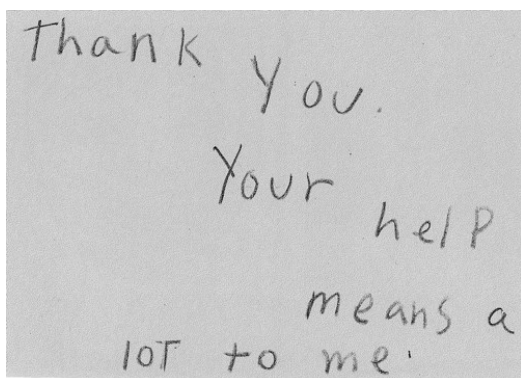 Thank
You.
Your
help
means a
lOT to me.